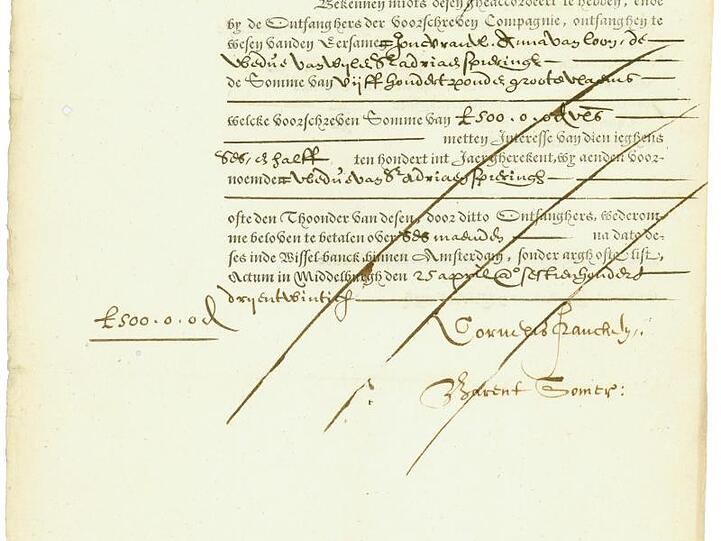 Bekennen midts desen gheaccordeert te hebben, ende
by de Ontfanghers der voorschreven Compagnie, ontfanghen te
wesen vanden Eersame Joncvrauw. Anna van loon, de
Weduwe van wijlen Sr adriaen spierinck
de Somme van Vijff hondert ponden groots vlaems
welcke voorschreven Somme van £ 500. 0. 0d vls
metten Interesse van dien jeghens
Ses, en halff ten hondert int Jaer gherekent, wy aenden voor-
noemde Weduwe van Sr Adriaen spierinck
ofte den Thoonder van desen, door ditto Ontfanghers, wederom-
me beloven te betalen over Ses maenden na dato de-
ses inde Wissel-banck binnen Amsterdam, sonder argh ofte list,
Actum in Middelburgh den 25 april Ao sesthien hondert
drijentwintich
£ 500. 0. 0d
Cornelis
Barent Somer: